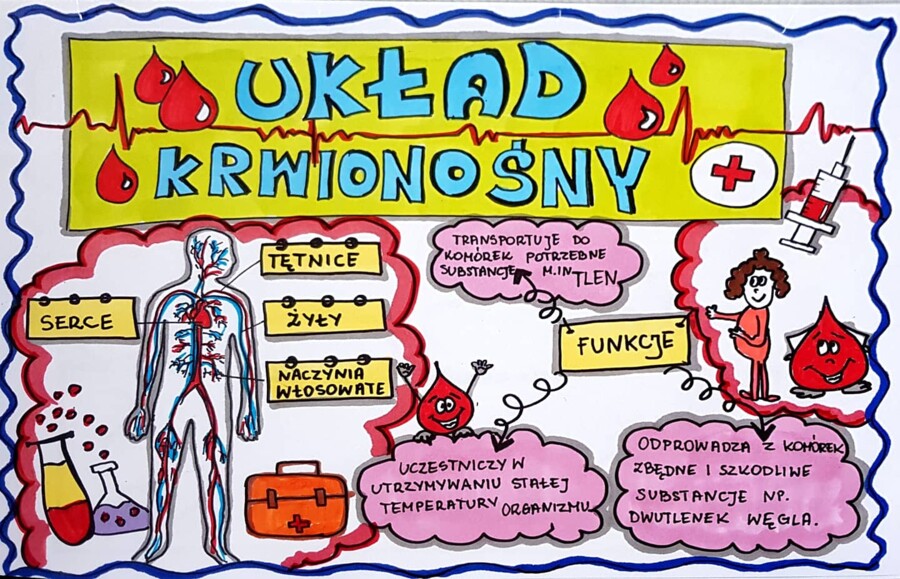 UKŁAD
KRWIONOŚNY
TĘTNICE
SERCE
ŻYŁY
NACZYNIA
WŁOSOWATE
TRANSPORTUJE DO
KOMÓREK POTRZEBNE
SUBSTANCJE M.IN TLEN
FUNKCJE
UCZESTNICZY W
UTRZYMYWANIU STAŁEJ
TEMPERATURY ORGANIZMU
ODPROWADZA Z KOMÓREK
ZBĘDNE I SZKODLIWE
SUBSTANCJE NP.
DWUTLENEK WĘGLA.